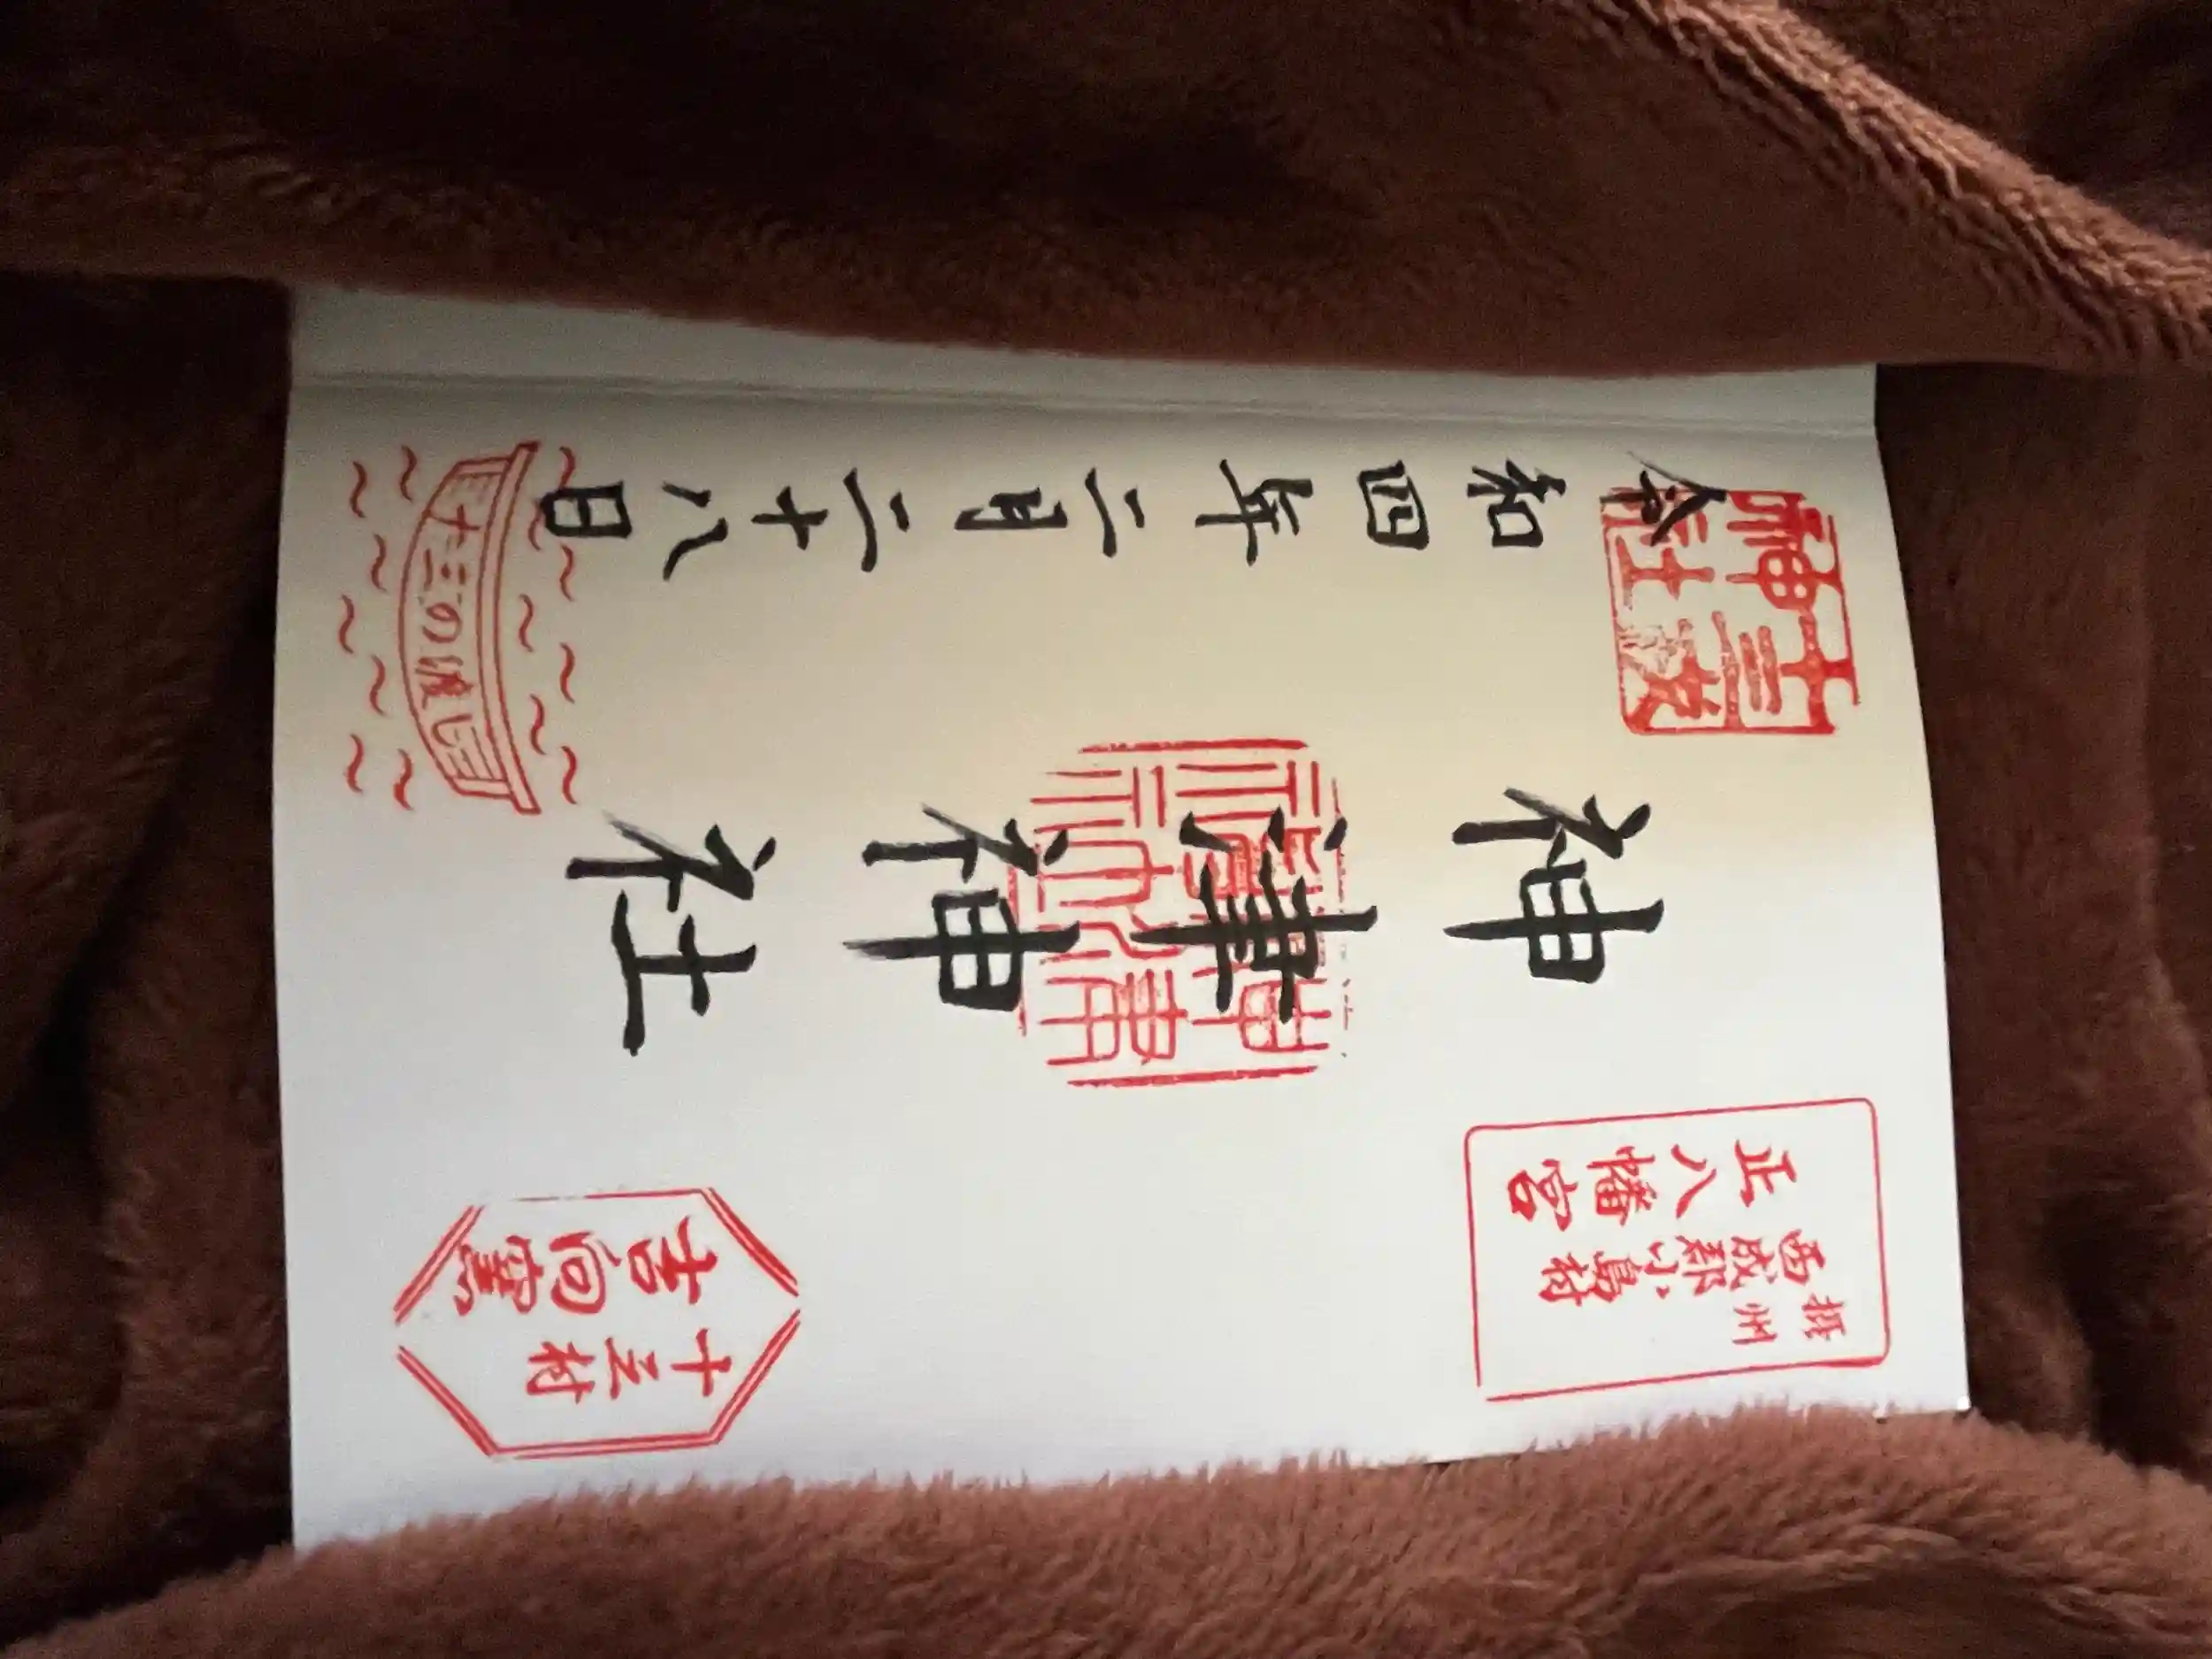 摂州
西成郡小島村
正八幡宮
十三村
吉向窯
神津神社
十三戎
神社
令和四年二月二十八日
十三の渡し